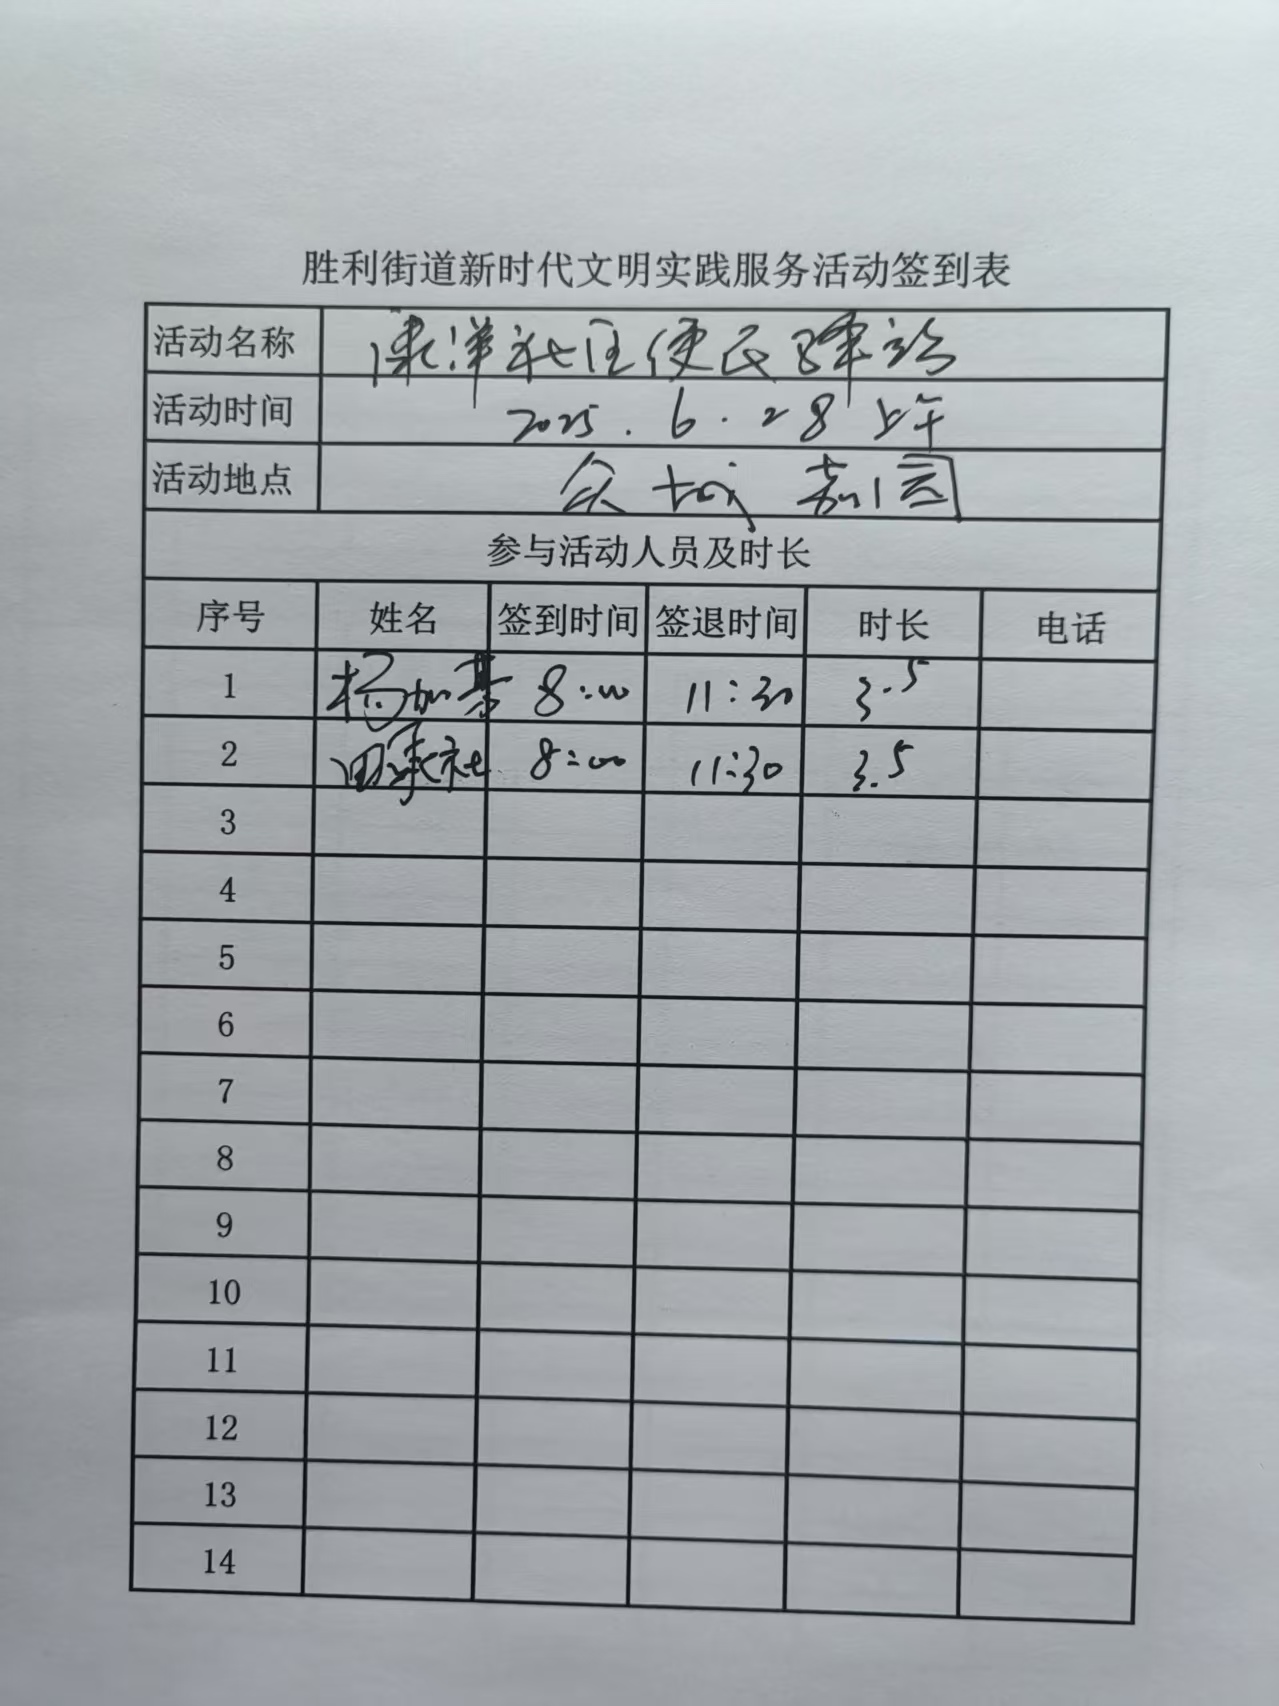 胜利街道新时代文明实践服务活动签到表
活动名称 康洋社区便民驿站
活动时间 2025.6.28上午
活动地点 众城嘉园
参与活动人员及时长
序号 姓名 签到时间 签退时间 时长 电话
1 杨加基 8:00 11:30 3.5
2 田承社 8:00 11:30 3.5
3
4
5
6
7
8
9
10
11
12
13
14